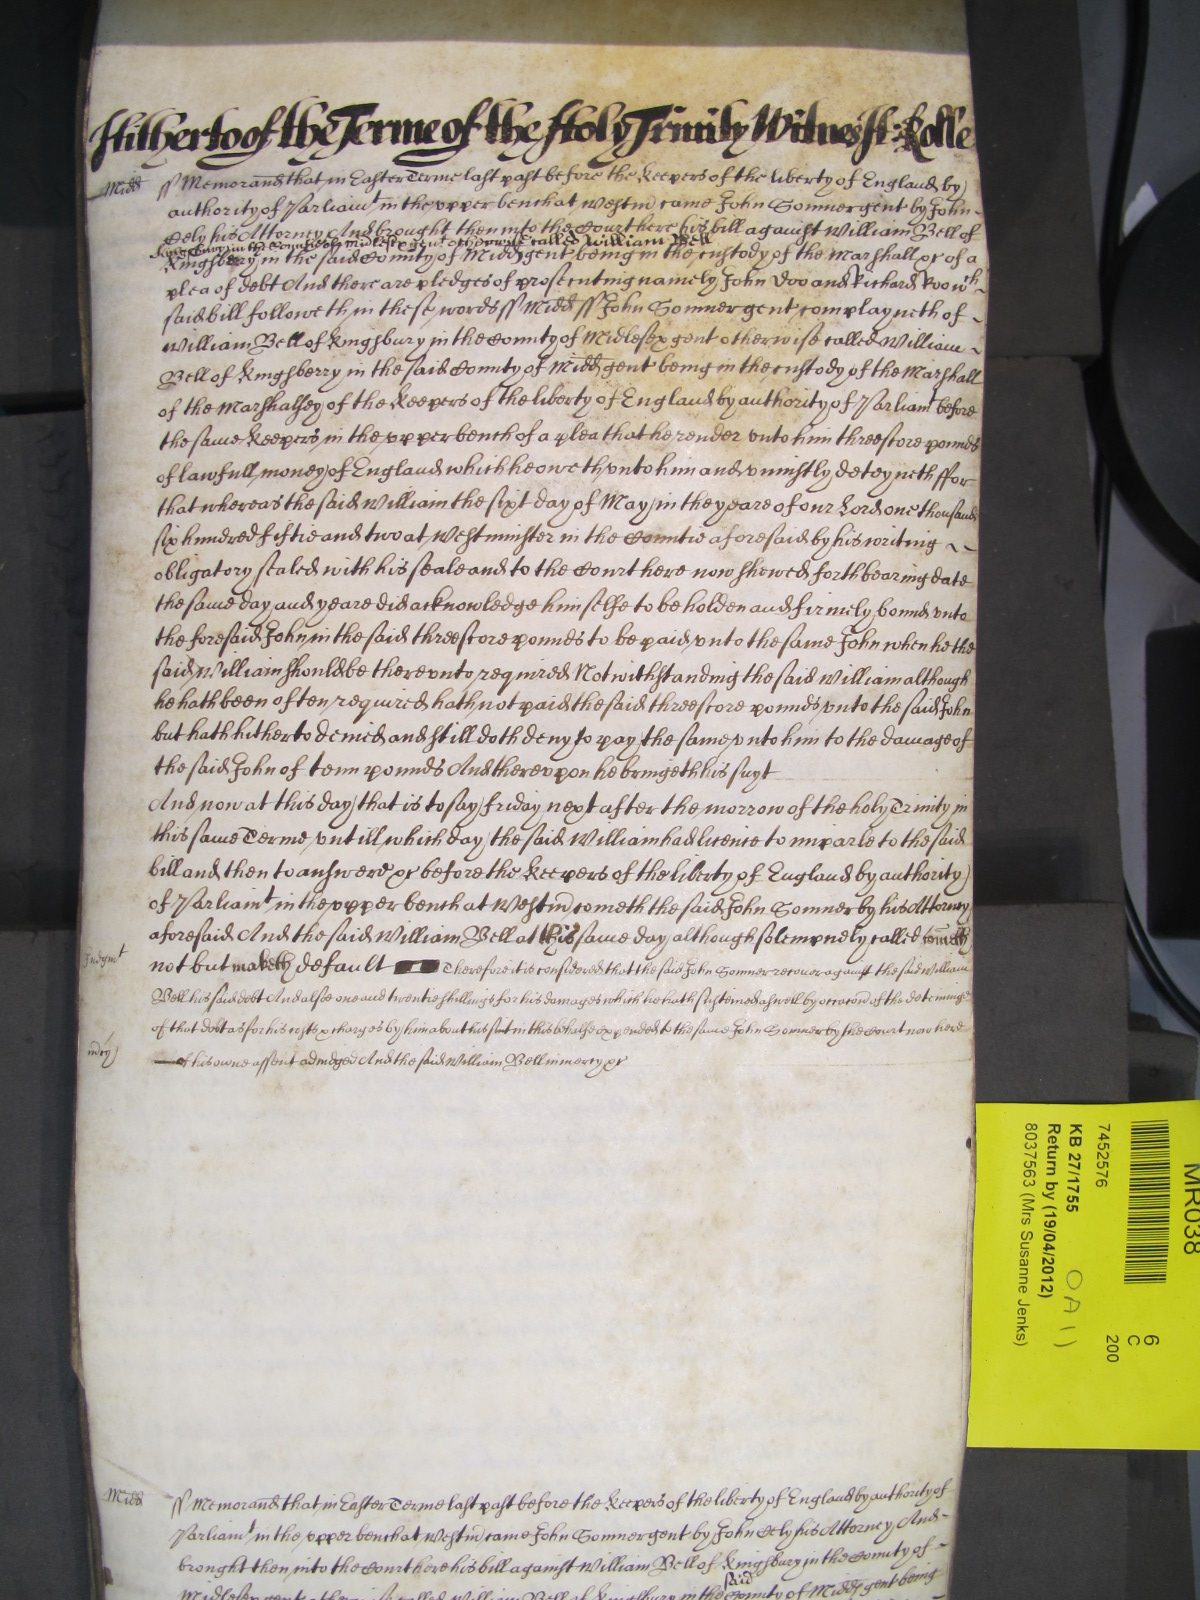 Hitherto of the Terme of the Holy Trinity Witnes H: Rolle
Midd ss Memorand that in Easter Terme last past before the keepers of the liberty of England by
authority of Parliamt in the vpper bench at Westm came John Somner gent by John
Eely his Attorney And brought then into the Court here his bill against William Bell of
Kingsbury in the Countie of Midlesex gent otherwise called William Bell
Kingsbery in the said County of Midd gent being in the custody of the Marshall &c of a
plea of debt And there are pledges of prosecuting namely John Doo and Richard Roo wch
said bill followeth in these words ss Midd ss John Somner gent complayneth of
William Bell of Kingsbury in the County of Midlesex gent otherwise called William
Bell of Kingsberry in the said County of Midd gent being in the custody of the Marshall
of the Marshalsey of the keepers of the liberty of England by authority of Parliamt before
the same keepers in the vpper bench of a plea that he render vnto him threescore pounds
of lawfull money of England which he oweth vnto him and vniustly deteyneth ffor
that whereas the said William the sixt day of May in the yeare of our Lord one thousand
six hundred fiftie and two at Westminster in the Countie aforesaid by his writing
obligatory sealed with his seale and to the Court here now shewed forth bearing date
the same day and yeare did acknowledge himselfe to be holden and firmely bound vnto
the foresaid John in the said threescore pounds to be paid vnto the same John when he the
said William should be therevnto required Notwithstanding the said William although
he hath been often required hath not paid the said threescore pounds vnto the said John
but hath hitherto denied and still doth deny to pay the same vnto him to the damage of
the said John of tenn pounds And therevpon he bringeth his suyt
And now at this day that is to say friday next after the morrow of the holy Trinity in
this same Terme vntill which day the said William had licence to imparle to the said
bill and then to answere &c before the keepers of the liberty of England by authority
of Parliamt in the vpper bench at Westm cometh the said John Somner by his Attorney
aforesaid And the said William Bell at this same day although solempnely called cometh
Judgmt not but maketh default Therefore it is considered that the said John Somner recover against the said William
Bell his said debt And alsoe one and twentie shillings for his damages which he hath susteined aswell by occasion of the deteining
of that debt as for his costs & charges by him about his suit in this behalfe expended to the same John Somner by the Court now here
mercy of his owne assent adiudged And the said William Bell in mercy &c
Midd ss Memorand that in Easter Terme last past before the keepers of the liberty of England by authority of
Parliamt in the vpper bench at Westm came John Somner gent by John Eely his Attorney And
brought then into the Court here his bill against William Bell of Kingsbury in the County of
said
Midlesex gent otherwise called William Bell of Kingsbury in the County of Midd gent being
MR038
6
C
200
7452576
KB 27/1755
OA 1)
Return by (19/04/2012)
8037563 (Mrs Susanne Jenks)